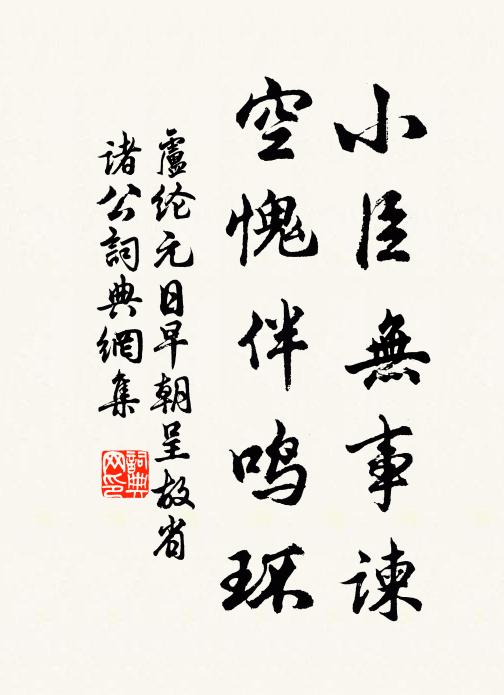 小臣無事諫
空愧伴鸣环
盧纶元日早朝呈故省
諸公詞典網集
詞典网印